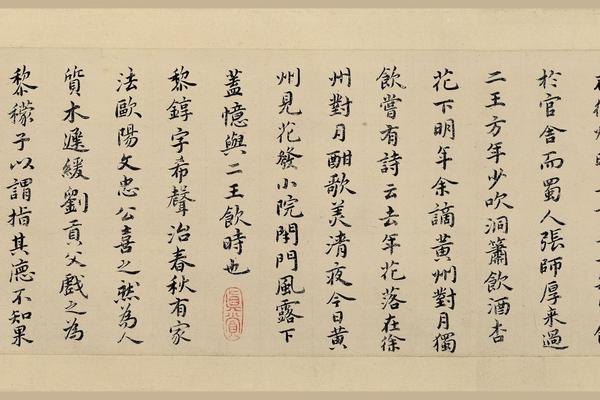 於官舍而蜀人張師厚来過
二王方年少吹洞簫飲酒杏
花下明年余謫黃州對月獨
飲嘗有詩云去年花落在徐
州對月酣歌美清夜今日黃
州見花發小院閉門風露下
蓋憶與二王飲時也
真賞
黎錞字希聲治春秋有家
法歐陽文忠公喜之然為人
質木遲緩劉貢父戲之為
黎檬子以謂指其德不知果